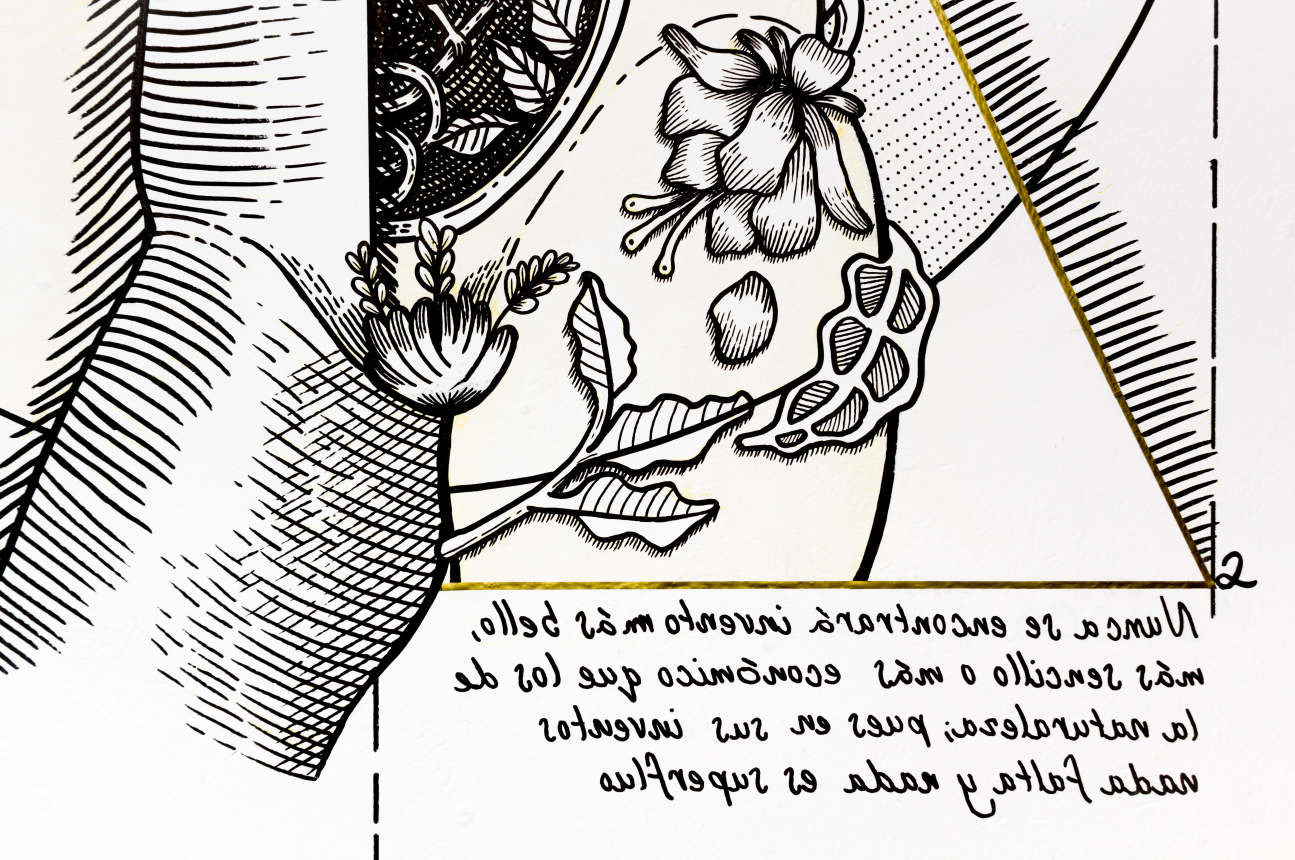 2
Nunca se encontrará invento más bello,
más sencillo o más económico que los de
la naturaleza; pues en sus inventos
nada falta y nada es superfluo